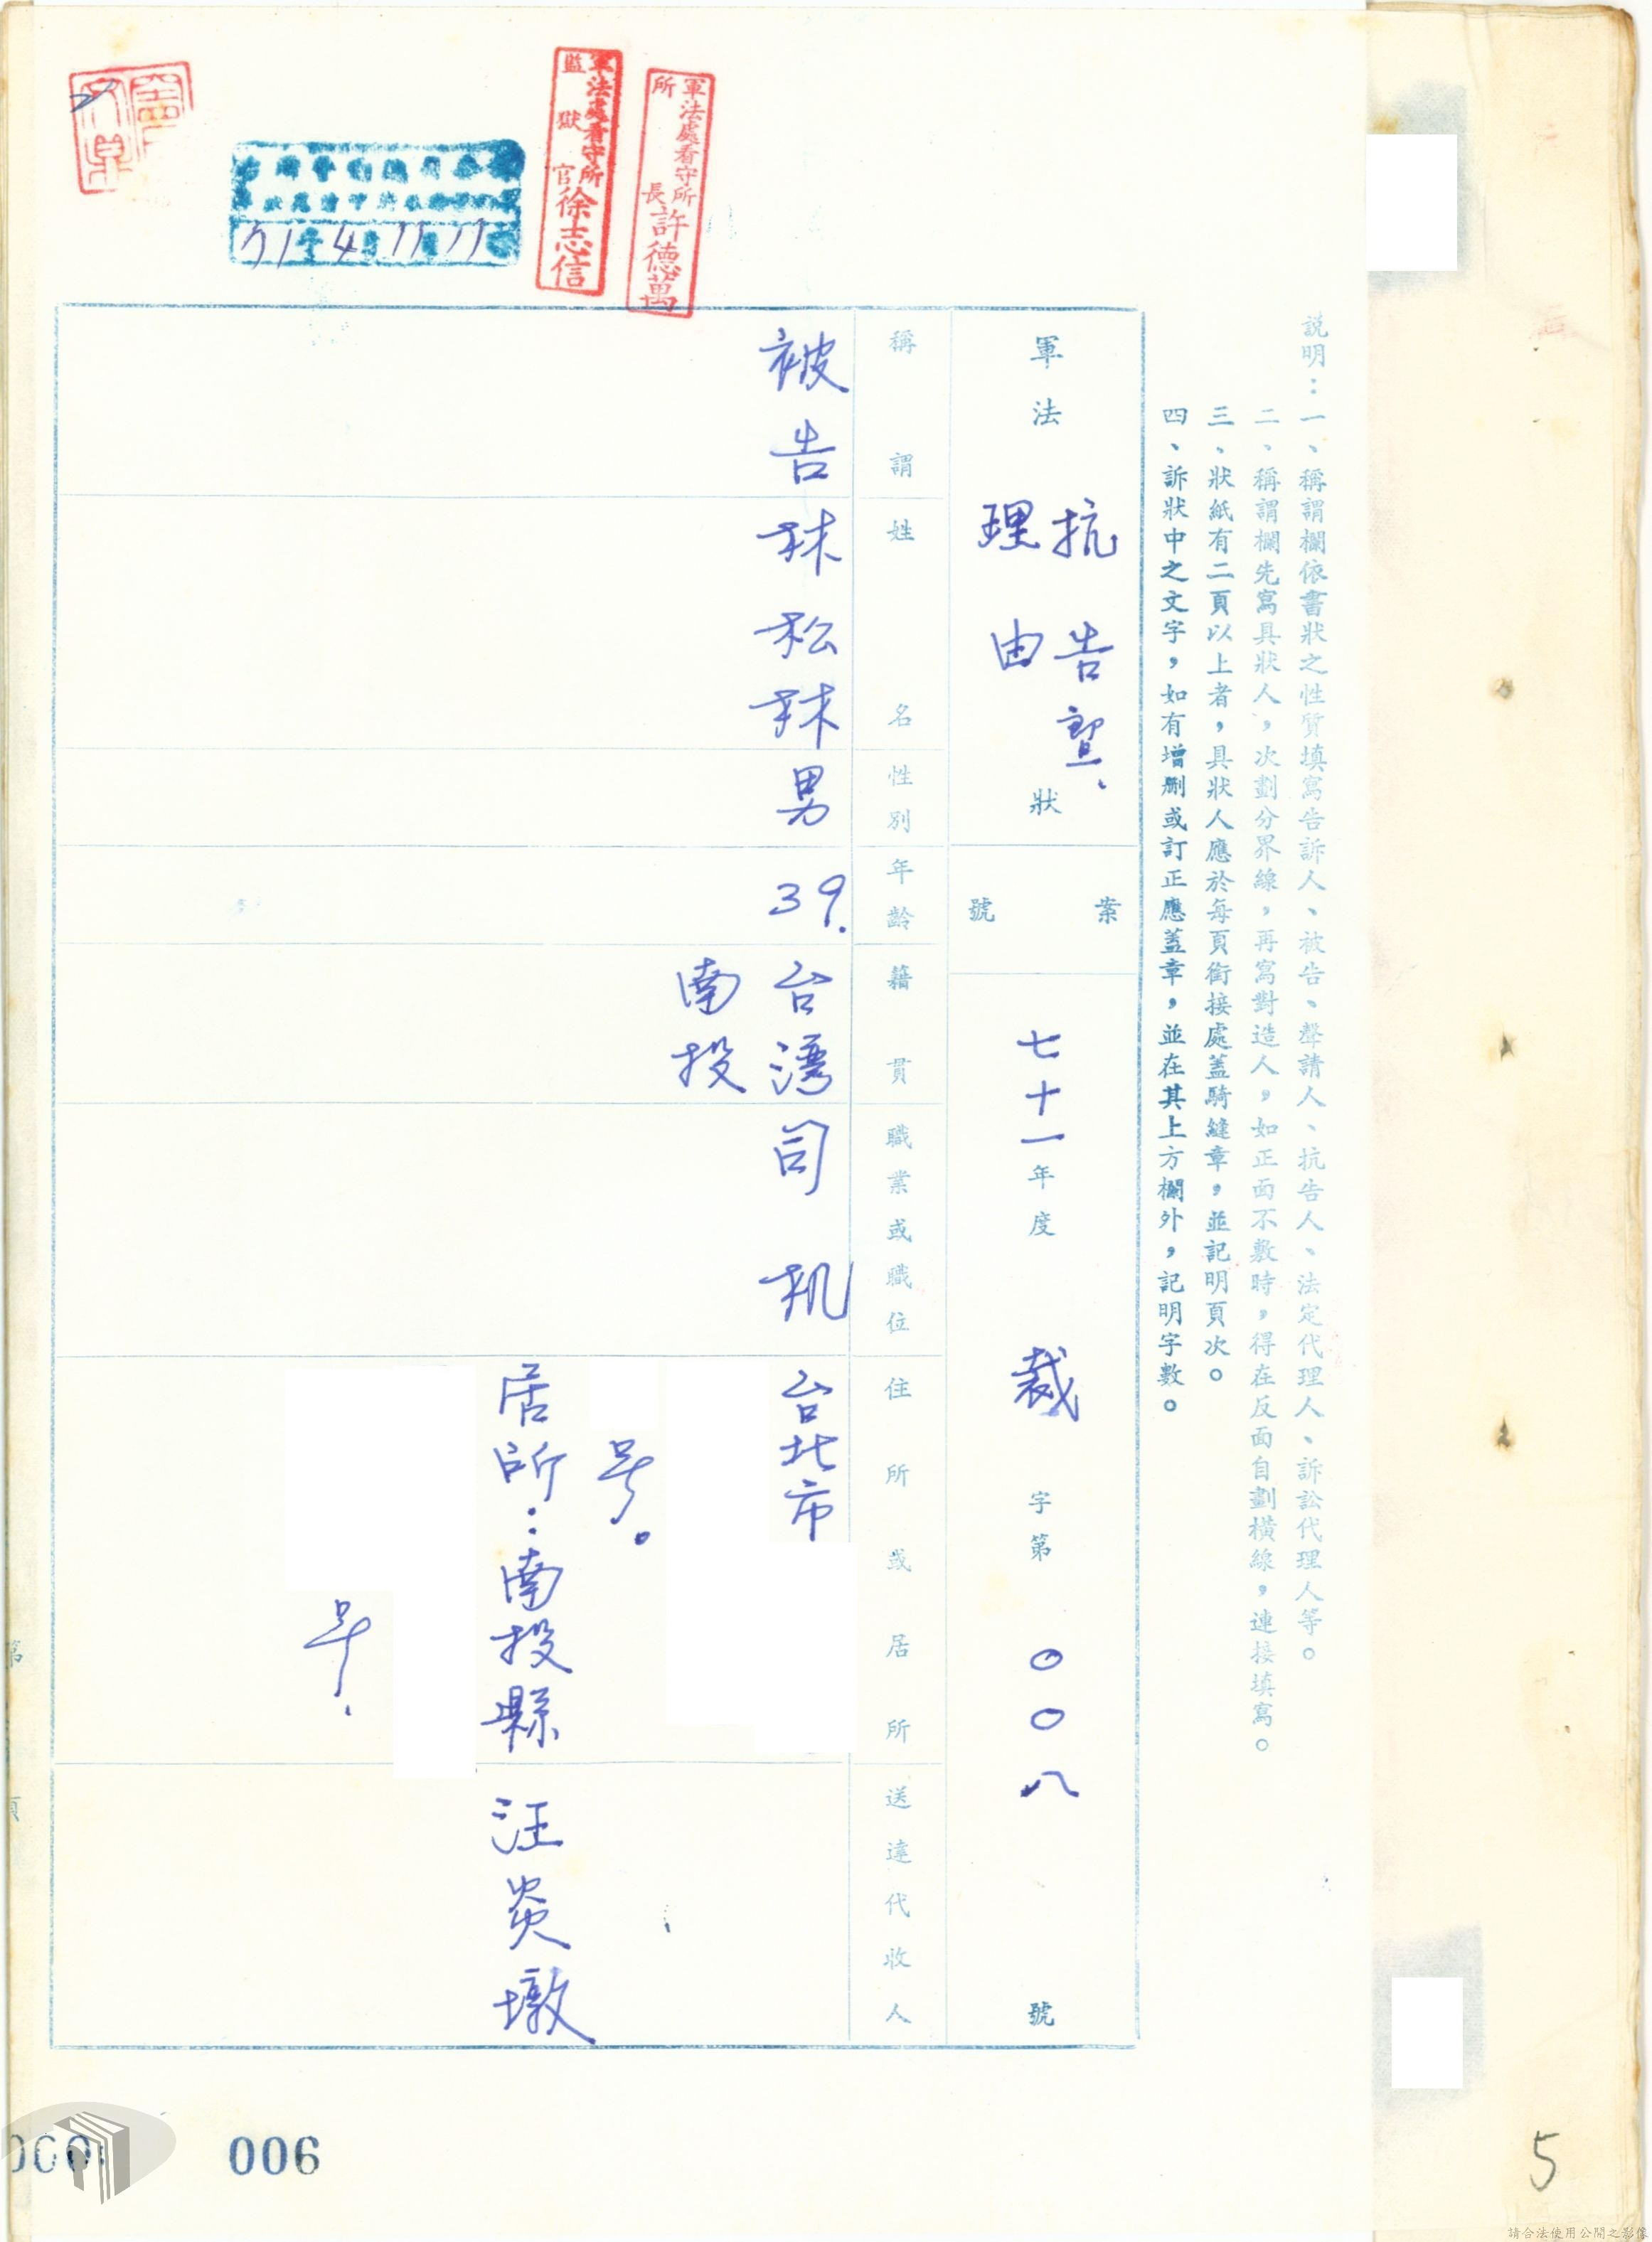 說明：一、稱謂欄依書狀之性質填寫告訴人、被告、聲請人、抗告人、法定代理人、訴訟代理人等。
二、稱謂欄先寫具狀人，次劃分界線，再寫對造人，如正面不敷時，得在反面自劃橫線，連接填寫。
三、狀紙有二頁以上者，具狀人應於每頁銜接處蓋騎縫章，並記明頁次。
四、訴狀中之文字，如有增刪或訂正應蓋章，並在其上方欄外，記明字數。
軍法
抗告暨
理由
狀
案號
七十一年度 裁 字第 〇〇八 號
稱謂
姓名
性別
年齡
籍貫
職業或職位
住所或居所
送達代收人
被告
林松林
男
39.
台湾
南投
司机
台北市
号。
居所：南投縣
号.
汪炎墩
軍法處看守所
所長許德萬
軍法處看守所
監獄官徐志信
71年4月17日17
006
5
請合法使用公開之影像